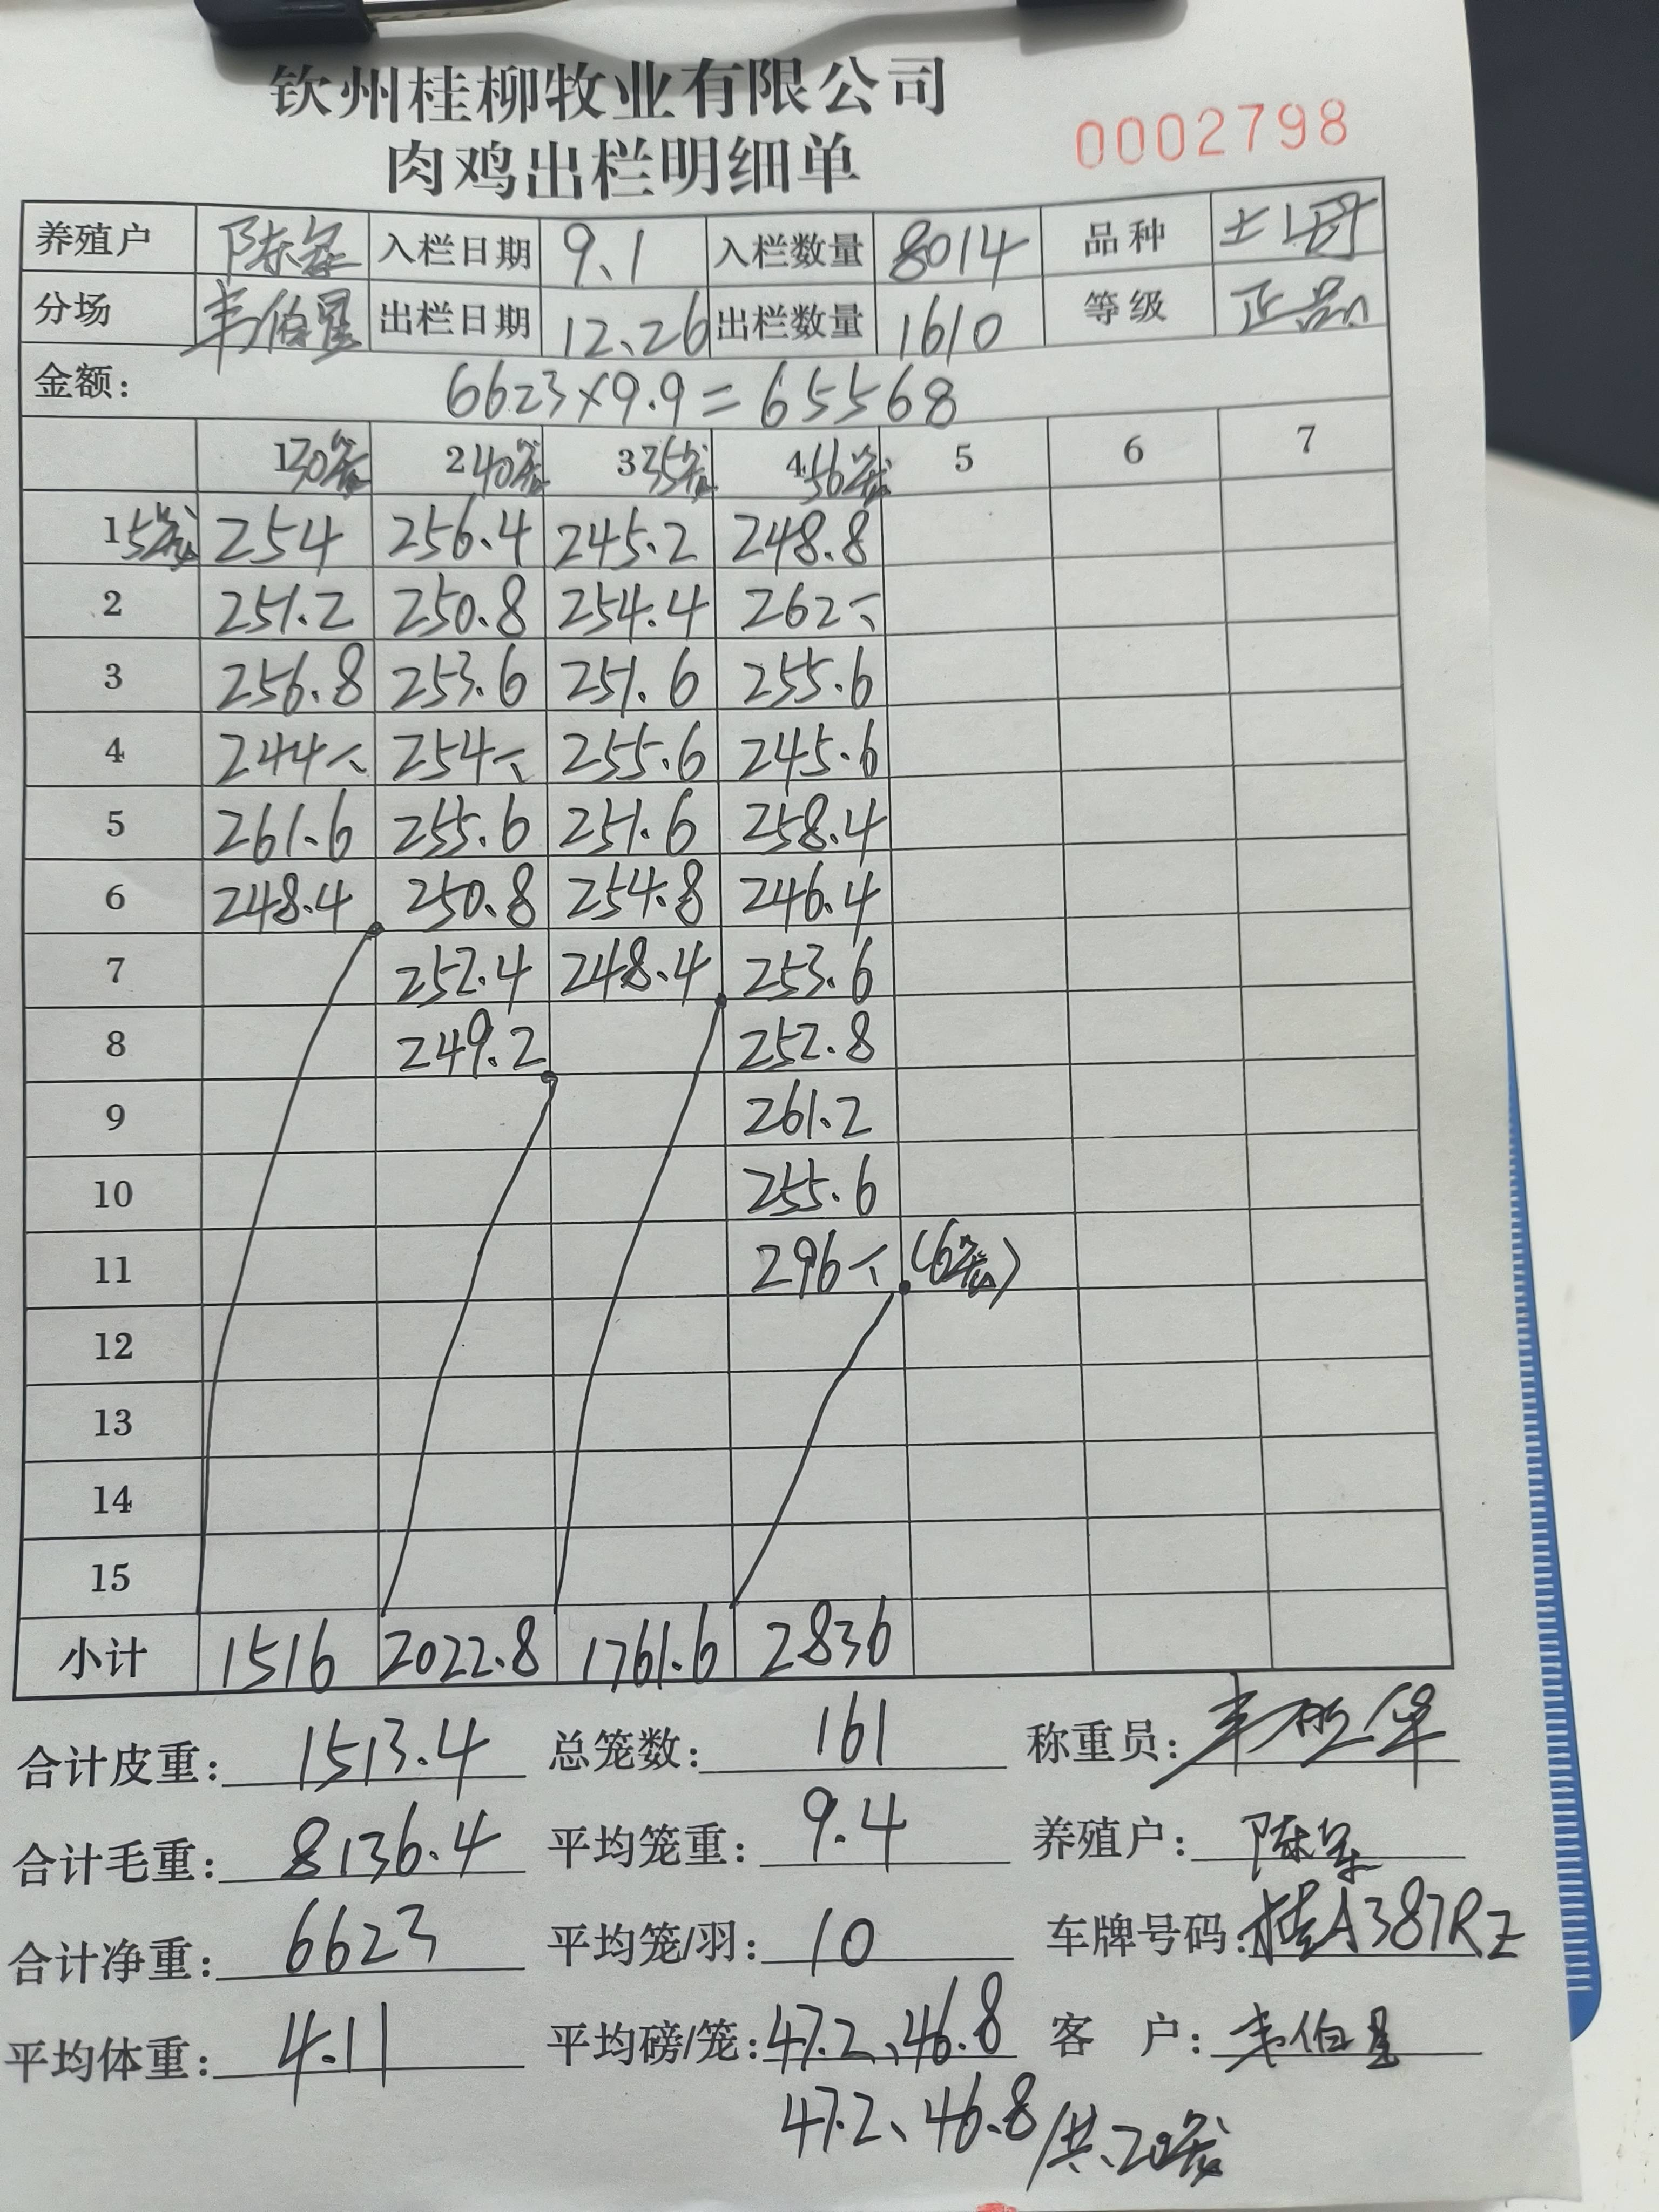 钦州桂柳牧业有限公司
肉鸡出栏明细单 0002798
养殖户 陈军 入栏日期 9.1 入栏数量 8014 品种 土1母
分场 韦伯星 出栏日期 12.26 出栏数量 1610 等级 正品
金额: 6623×9.9=65568
1 30笼 2 40笼 3 35笼 4 56笼 5 6 7
1 5笼 254 256.4 245.2 248.8
2 251.2 250.8 254.4 262
3 256.8 253.6 251.6 255.6
4 244 254 255.6 245.6
5 261.6 255.6 251.6 258.4
6 248.4 250.8 254.8 246.4
7 252.4 248.4 253.6
8 249.2 252.8
9 261.2
10 255.6
11 296 (6笼)
12
13
14
15
小计 1516 2022.8 1761.6 2836
合计皮重: 1513.4 总笼数: 161 称重员: 韦
合计毛重: 8136.4 平均笼重: 9.4 养殖户: 陈军
合计净重: 6623 平均笼/羽: 10 车牌号码: 桂A387RZ
平均体重: 4.11 平均磅/笼: 47.2、46.8 客 户: 韦伯星
47.2、46.8/共20笼